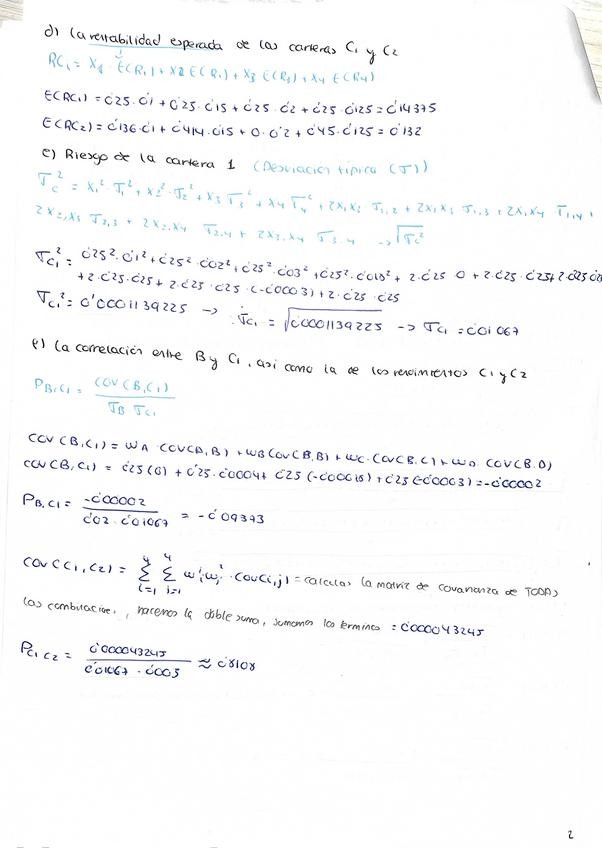 d) La rentabilidad esperada de las carteras C1 y C2
RC1 = X1 · E(R1) + X2 E(R1) + X3 E(R3) + X4 E(R4)
E(RC1) = 0'25 · 0'1 + 0'25 · 0'15 + 0'25 · 0'2 + 0'25 · 0'125 = 0'14375
E(RC2) = 0'136 · 0'1 + 0'414 · 0'15 + 0 · 0'2 + 0'45 · 0'125 = 0'132
e) Riesgo de la cartera 1 (Desviación típica (σ))
σc² = X1² · σ1² + X2² · σ2² + X3 σ3² + X4 σ4² + 2X1X2 σ1,2 + 2X1X3 σ1,3 + 2X1X4 σ1,4 +
2X2,X3 σ2,3 + 2X2,X4 σ2,4 + 2X3,X4 σ3,4 → √σc²
σc1² = 0'25² · 0'01² + 0'25² · 0'02² + 0'25² · 0'03² + 0'25² · 0'018² + 2 · 0'25 · 0 + 2 · 0'25 · 0'25 + 2 · 0'25
+ 2 · 0'25 · 0'25 + 2 · 0'25 · 0'25 · (-0'0003) + 2 · 0'25 · 0'25
σc1² = 0'0001139225 → σc1 = √0'0001139225 → σc1 = 0'01067
f) La correlación entre B y C1, así como la de los rendimientos C1 y C2
PB,C1 = COV(B,C1) / σB σC1
COV(B,C1) = WA · COV(A,B) + WB COV(B,B) + WC · COV(B,C) + WD · COV(B,D)
COV(B,C1) = 0'25(0) + 0'25 · 0'0004 + 0'25 (-0'00018) + 0'25(-0'0003) = -0'00002
PB,C1 = -0'00002 / 0'02 · 0'01067 = -0'09373
COV(C1,C2) = Σ i=1 4 Σ j=1 4 wi wj · Cov(i,j) = calculas la matriz de covarianza de TODAS
las combinacione., hacemos la doble suma, sumamos los términos = 0'000043245
PC1 C2 = 0'000043245 / 0'01067 · 0'005 ≈ 0'8108
2